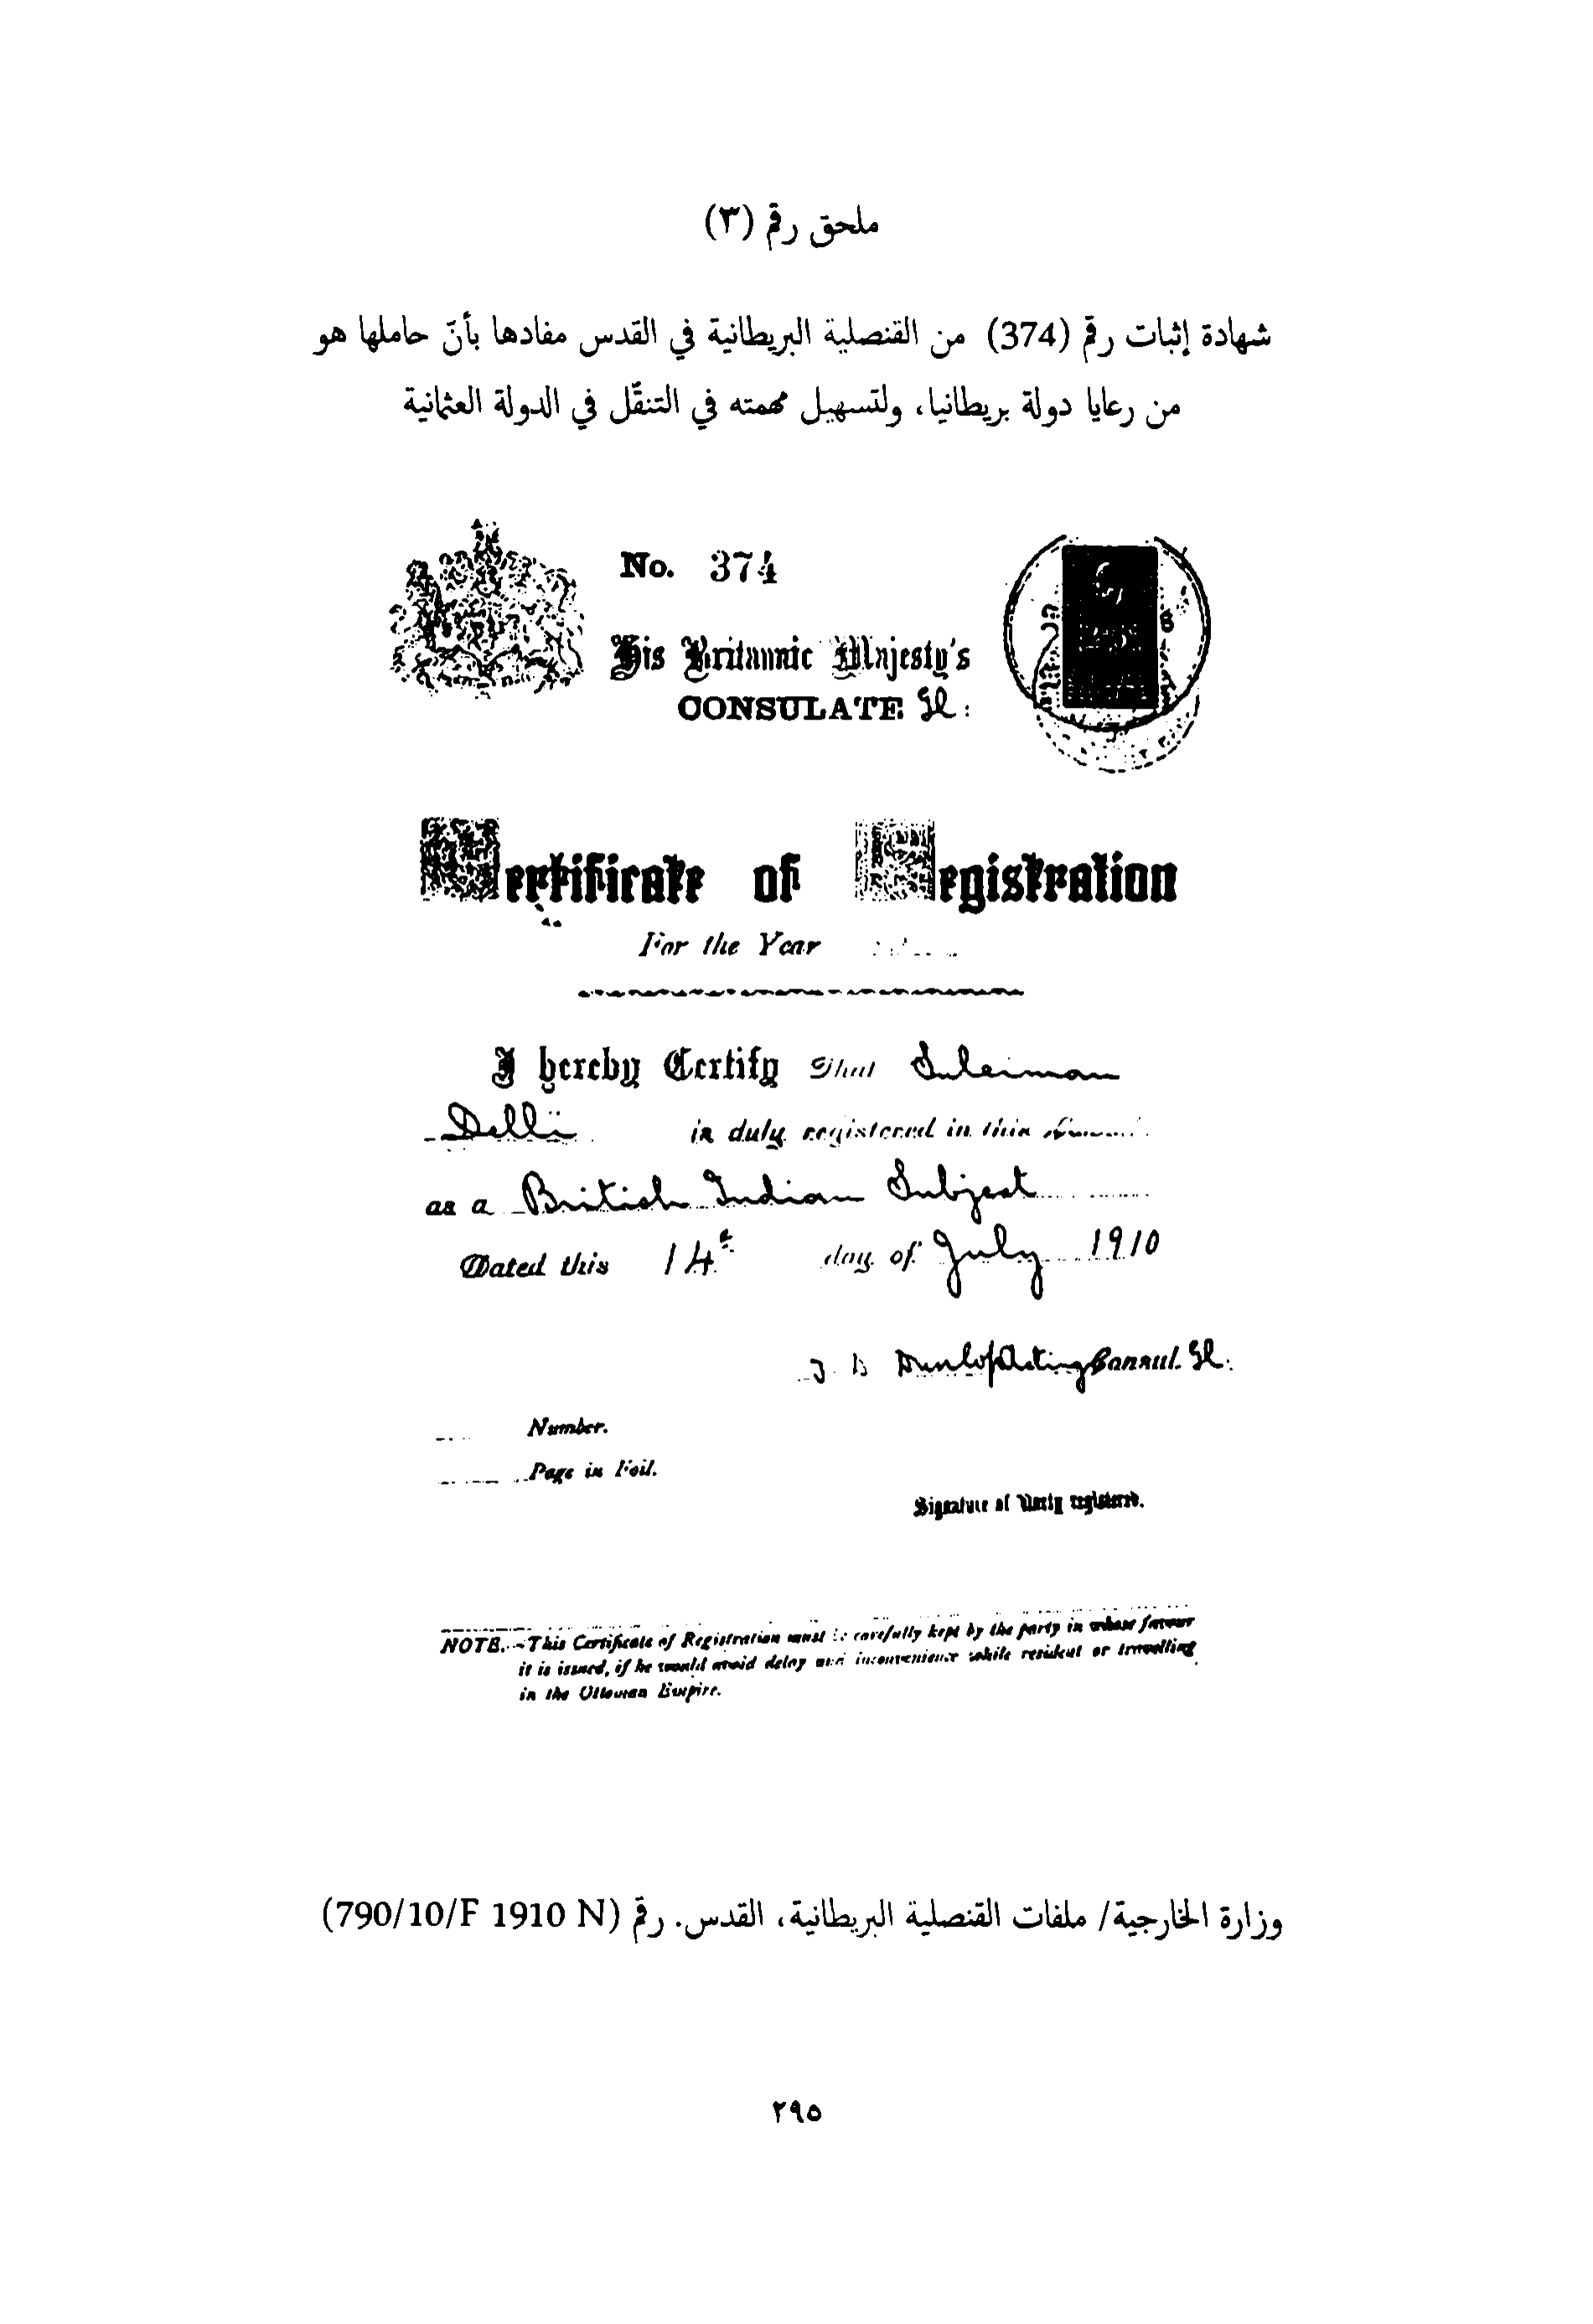 ملحق رقم (٣)
شهادة إثبات رقم (374) من القنصلية البريطانية في القدس مفادها بأنّ حاملها هو
من رعايا دولة بريطانيا، ولتسهيل مهمته في التنقّل في الدولة العثمانية
No. 374
His Britannic Majesty's
CONSULATE
Certificate of Registration
For the Year
I hereby Certify That Suleiman
Delli is duly registered in this
as a British Indian Subject
Dated this 14 day of July 1910
Dunlop Acting Consul.
Number.
Page in Foil.
Signature of Party registered.
NOTE.—This Certificate of Registration must be carefully kept by the party in whose favour
it is issued, if he would avoid delay and inconvenience while resident or travelling
in the Ottoman Empire.
وزارة الخارجية/ ملفات القنصلية البريطانية، القدس. رقم (790/10/F 1910 N)
٢٩٥